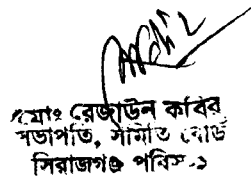 মোঃ রেজাউল কবির
সভাপতি, সমিতি বোর্ড
সিরাজগঞ্জ পবিস-১